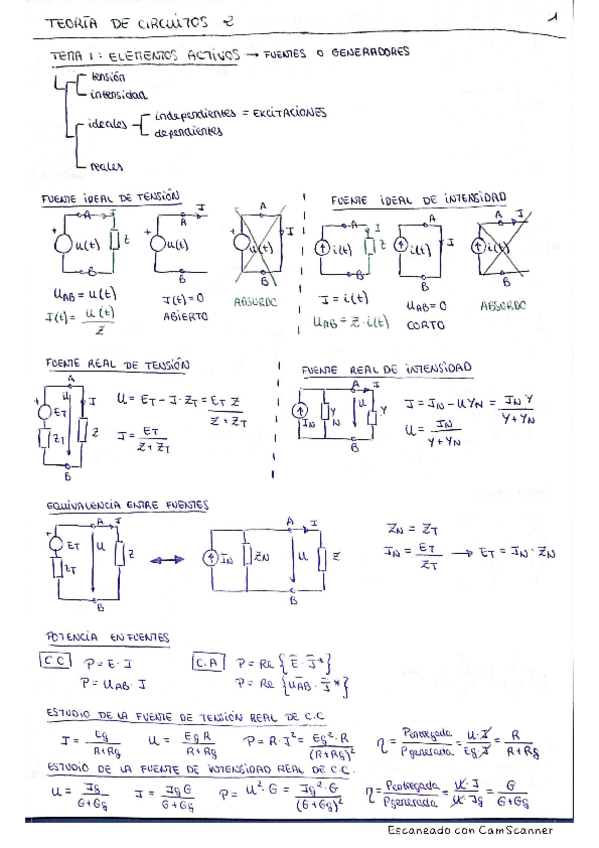 TEORÍA DE CIRCUITOS 2
1
TEMA 1: ELEMENTOS ACTIVOS → FUENTES O GENERADORES
tensión
intensidad
ideales
independientes = EXCITACIONES
dependientes
reales
FUENTE IDEAL DE TENSIÓN
A I + u(t) Z B
A I + u(t) B
A + u(t) I B
U_AB = u(t)
I(t) = u(t)/Z
I(t) = 0
ABIERTO
ABSURDO
FUENTE IDEAL DE INTENSIDAD
A I i(t) Z B
A i(t) I B
A I i(t) B
I = i(t)
U_AB = Z · i(t)
U_AB = 0
CORTO
ABSURDO
FUENTE REAL DE TENSIÓN
A + U I E_T Z_T Z B
U = E_T - I · Z_T = E_T Z / (Z + Z_T)
I = E_T / (Z + Z_T)
FUENTE REAL DE INTENSIDAD
A I I_N Y_N U Y B
I = I_N - U Y_N = I_N Y / (Y + Y_N)
U = I_N / (Y + Y_N)
EQUIVALENCIA ENTRE FUENTES
A I + E_T U Z Z_T B
A I I_N Z_N U Z B
Z_N = Z_T
I_N = E_T / Z_T → E_T = I_N · Z_N
POTENCIA EN FUENTES
C.C P = E · I
P = U_AB · I
C.A P = Re {E · I*}
P = Re {U_AB · I*}
ESTUDIO DE LA FUENTE DE TENSIÓN REAL DE C.C
I = Eg / (R+Rg) U = Eg R / (R+Rg) P = R · I² = Eg² · R / (R+Rg)² η = Pentregada / Pgenerada = U · I / Eg · I = R / (R+Rg)
ESTUDIO DE LA FUENTE DE INTENSIDAD REAL DE C.C.
U = Ig / (G+Gg) I = Ig G / (G+Gg) P = U² · G = Ig² · G / (G+Gg)² η = Pentregada / Pgenerada = U · I / U · Ig = G / (G+Gg)
Escaneado con CamScanner